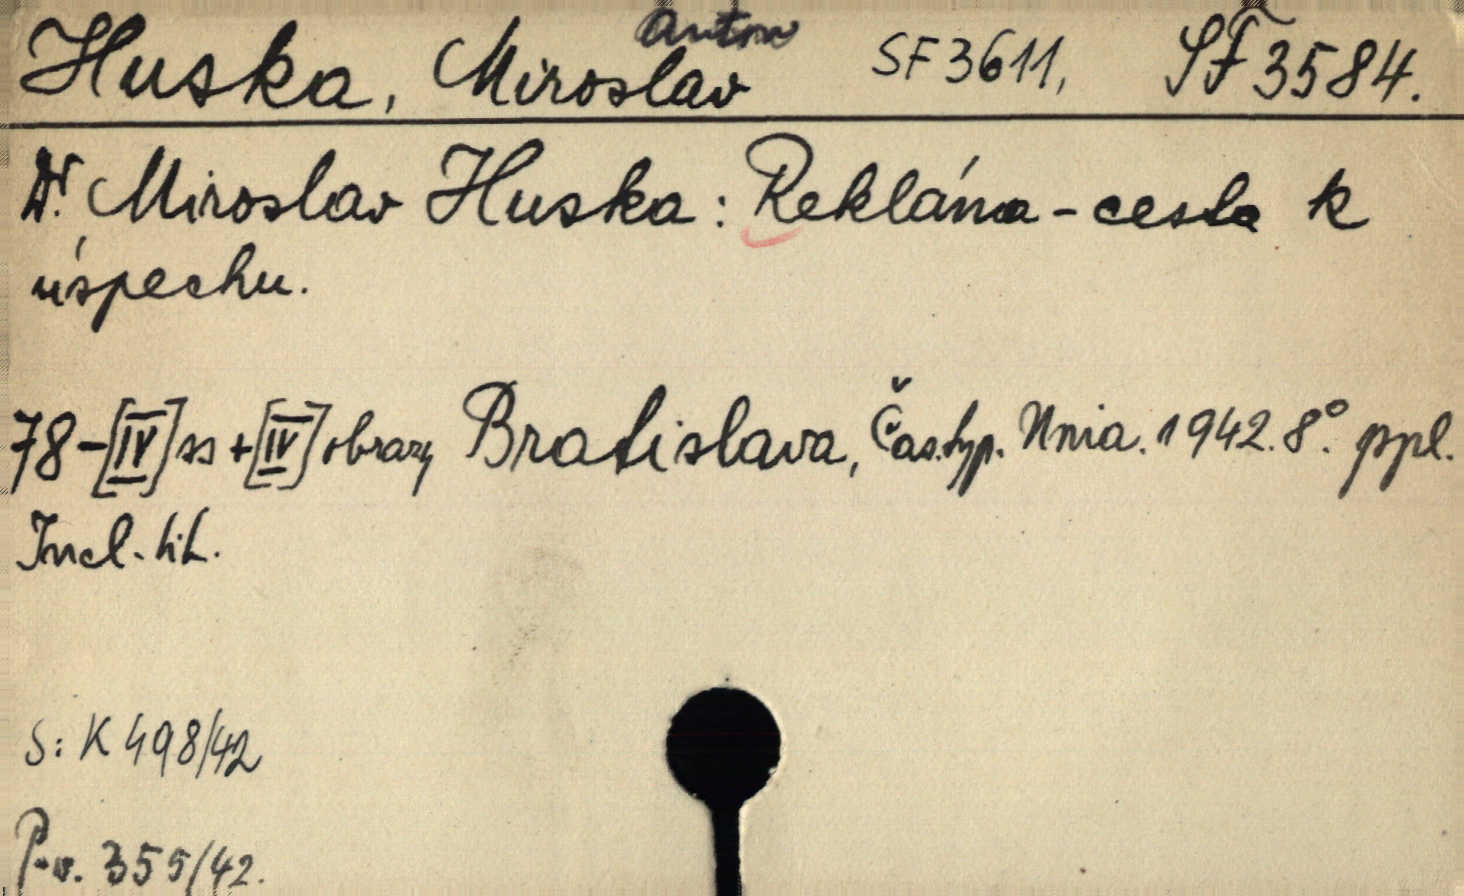 Huska, Miroslav Anton SF 3611, SF 3584.
Dr. Miroslav Huska: Rekláma - cesta k
úspechu.
78-[IV] ss + [IV] obrazy Bratislava, Čas. typ. Unia. 1942. 8°. ppl.
Incl. tit.
S: K 498/42
P.v. 355/42.